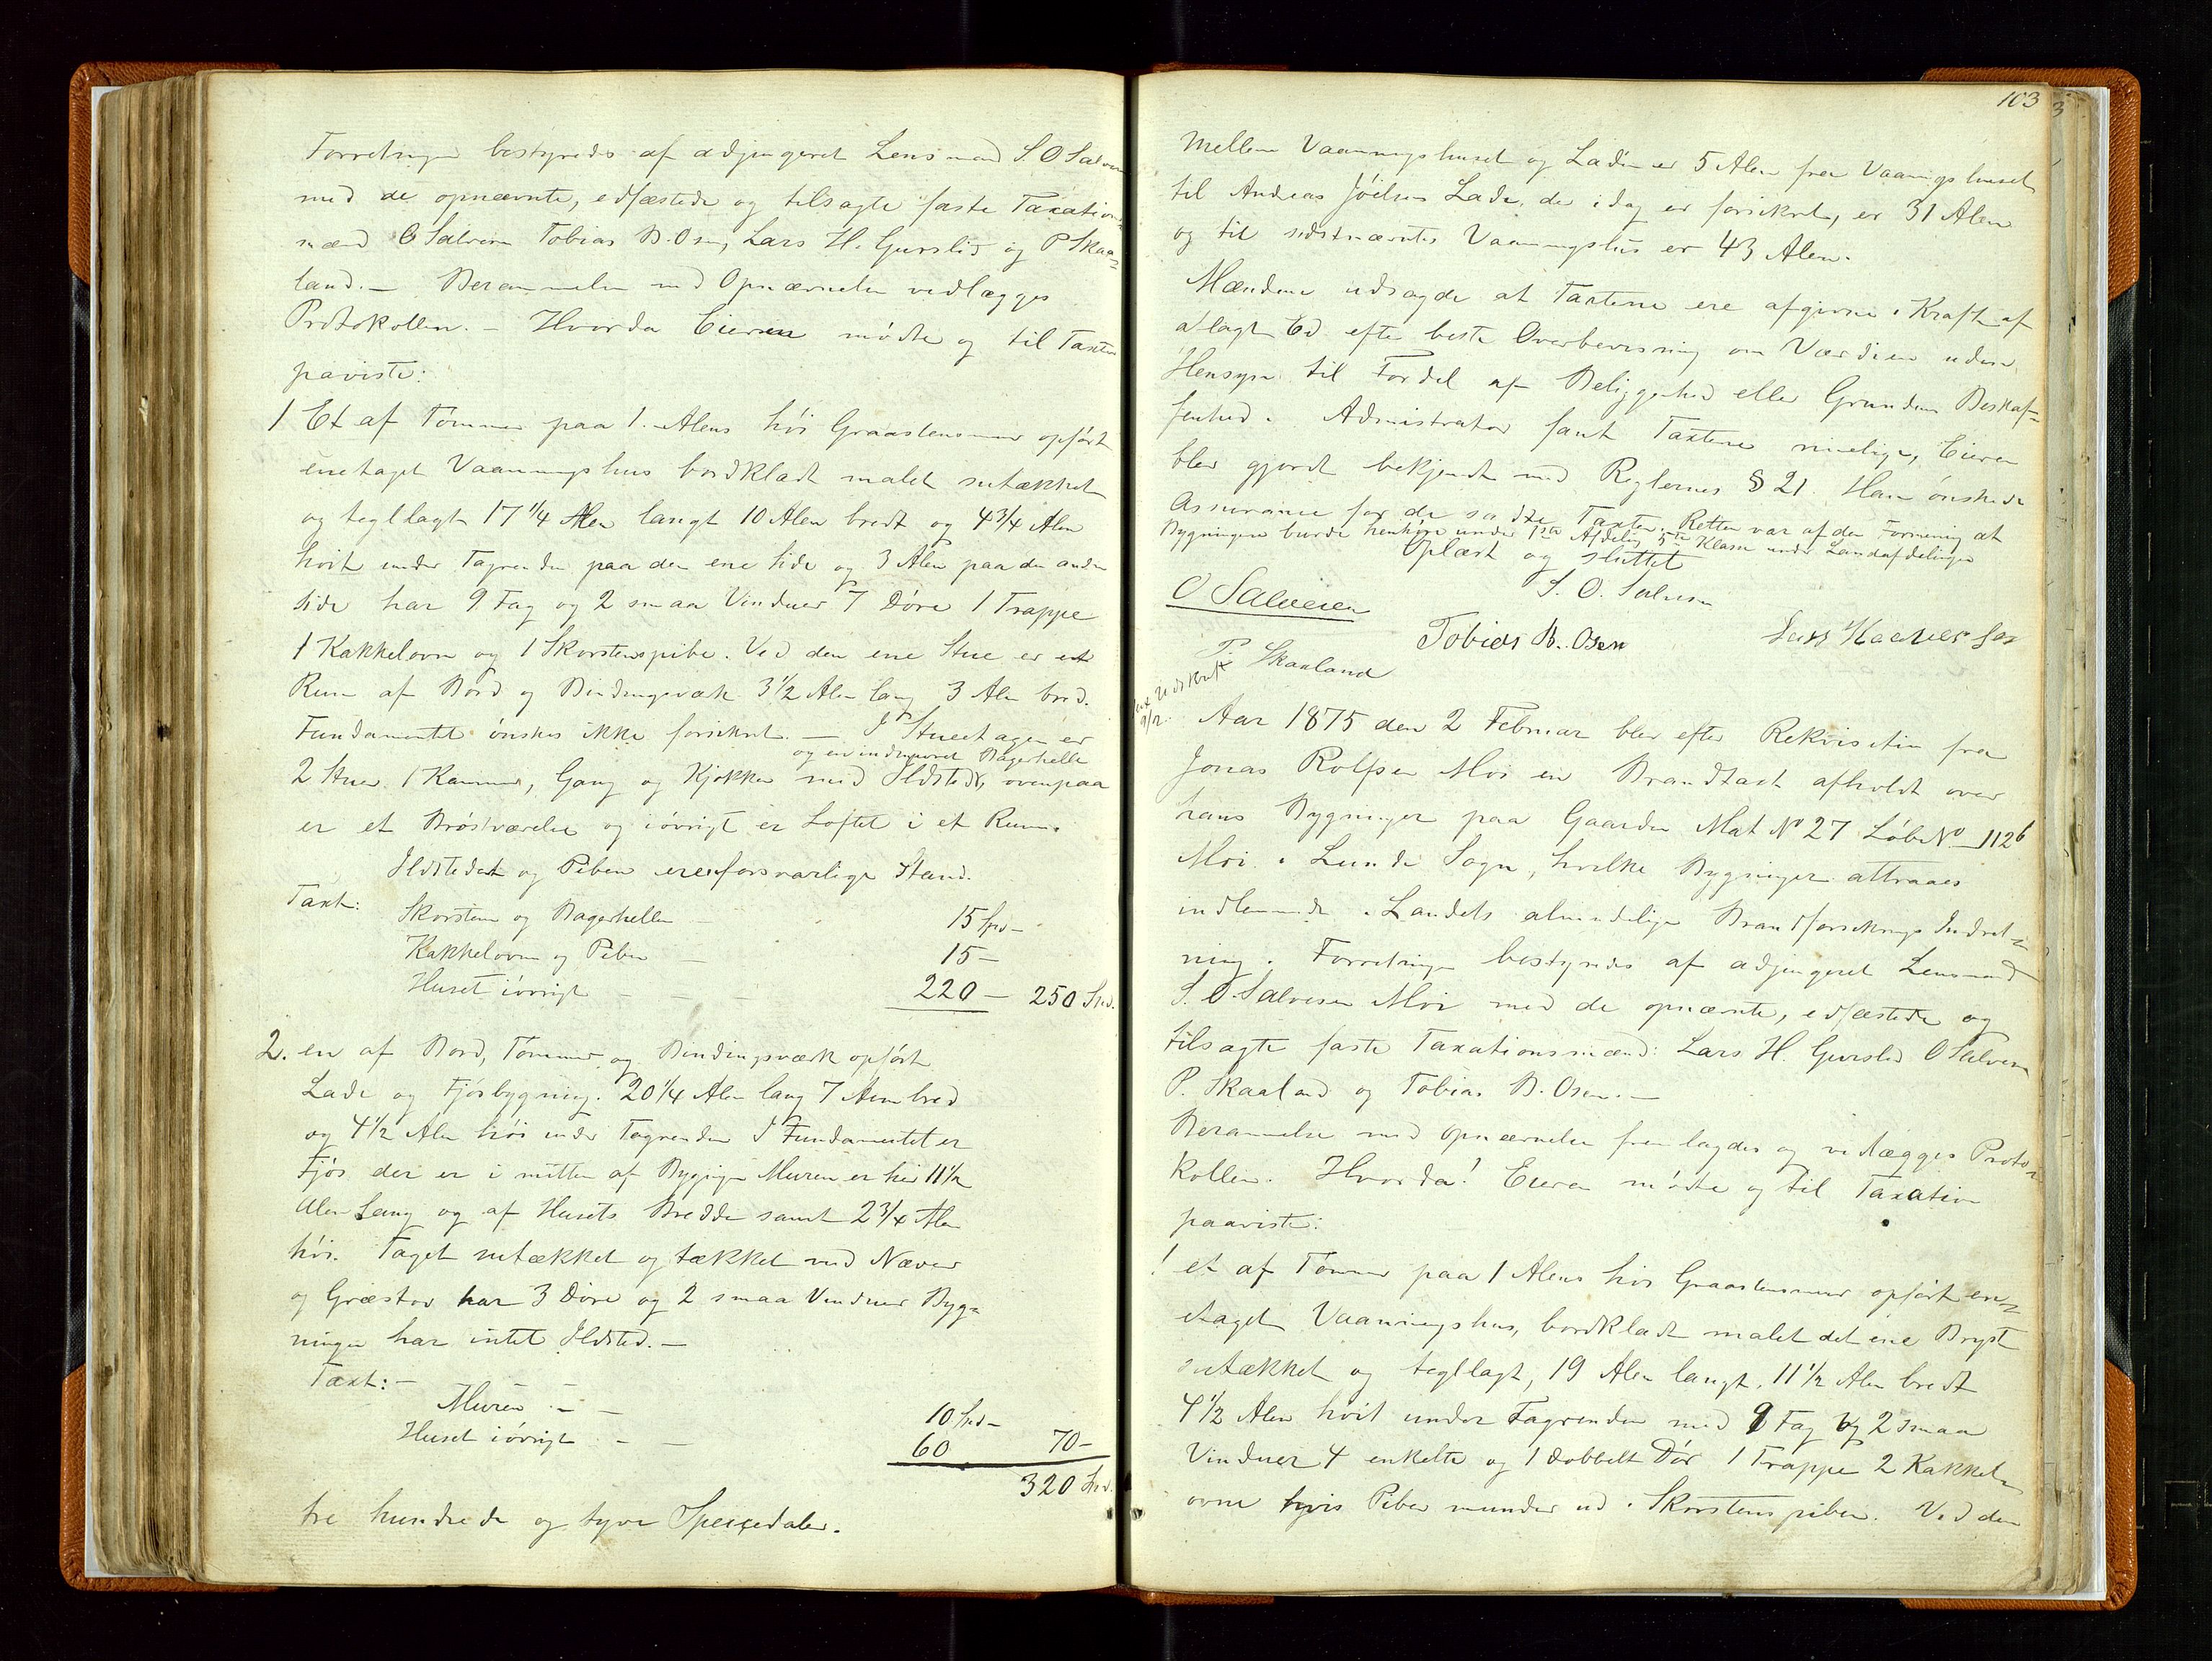 Forretningen bestyredes af adjungeret Lensmand S. O Salvesen
med de opnævnte, edfæstede og tilsagte faste Taxations
mænd O Salvesen Tobias B. Osen, Lars H. Gursli og P Skaa-
land. – Berammelsen med Opnævnelse vedlægges
Protokollen. – Hvorda Eieren mødte og til Taxten
paviste:
1 Et af Tømmer paa 1. Alens høi Graastensmur opført
enetaget Vaaningshus bordklædt malet sutækket
og tegllagt 17 1/4 Alen langt 10 Alen bredt og 4 3/4 Alen
høit under Tagrenden paa den ene side og 3 Alen paa den anden
side har 9 Fag og 2 smaa Vinduer 7 Døre 1 Trappe
1 Kakkelovn og 1 Skorstenspibe. Ved den ene Stue er et
Rum af Bord og Bindingsværk 3 1/2 Alen lang 3 Alen bred.
Fundamentet ønskes ikke forsikret. – I Stueetagen er
og en indmuret Bagerhelle
2 Stuer 1 Kammer, Gang og Kjøkken med Ildsted, ovenpaa
er et Brøstværelse og iøvrigt er Loftet i et Rum.
Ildstedet og Piben ere i forsvarlige Stand.
Taxt: Skorsten og Bagerhellen – 15 Spd –
Kakkelovn og Piben – 15 –
Huset iøvrigt – – – 220 – 250 Spd.
2. en af Bord, Tømmer og Bindingsværk opført
Lade og Fjøsbygning. 20 1/4 Alen lang 7 Alen bred
og 4 1/2 Alen høi under Tagrenden I Fundamentet er
Fjøs der er i mitten af Bygningen Muren er her 11 1/2
Alen Lang og af Husets Bredde samt 2 3/4 Alen
høi. Taget sutækket og tækket med Næver
og Græstorv har 3 Døre og 2 smaa Vinduer Byg-
ningen har intet Ildsted. –
Taxt: –
Muren – – 10 Spd –
Huset iøvrigt – – 60 70 –
320 Spd.
tre hundrede og tyve Speciedaler.
103
Mellem Vaaningshuset og Laden er 5 Alen fra Vaaningshuset
til Andreas Jóelsens Lade, der idag er forsikret, er 31 Alen
og til sidstnævntes Vaaningshus er 43 Alen.
Mændene udsagde at Taxterne ere afgivne i Kraft af
aflagt Ed efter beste Overbevisning om Værdien uden
Hensyn til Fordel af Beliggenhed eller Grundens Beskaf-
fenhed. Administrator fant Taxterne rimelige, Eieren
blev gjordt bekjendt med Reglernes § 21. Han ønskede
Assurance for de satte Taxter. Retten var af den Formening at
Bygningene burde henhøre under 1ste Afdeling 5te Klasse under Landafdelingen
Oplæst og sluttet
S. O. Salvesen
O Salvesen
Tobias B. Osen
P Skaaland
9/2.
Aar 1875 den 2 Februar blev efter Rekvisition fra
Jonas Rolfsen Moi en Brandtaxt afholdt over
hans Bygninger paa Gaarden Mat No 27 Løbe No 112b
Moi i Lunde Sogn, hvilke Bygninger attraaes
indlemmede i Landets almindelige Brandforsikrings Indret-
ning. Forretningen bestyredes af adjungeret Lensmand
S. O. Salvesen Moi med de opnævnte, edfæstede og
tilsagte faste Taxationsmænd: Lars H. Gursli O Salvesen
P. Skaaland og Tobias B. Osen. –
Berammelse med opnævnelse fremlagdes og vedlægges Proto-
kollen. Hvorda! Eieren mødte og til Taxation
paaviste:
1 et af Tømmer paa 1 Alens høi Graastensmur opført en-
etaget Vaaningshus, bordklædt malet det ene Bryst
sutækket og tegllagt, 19 Alen langt, 11 1/2 Alen bredt
4 1/2 Alen høit under Tagrenden med 9 Fag og 2 smaa
Vinduer 4 enkelte og 1 dobbelt Dør 1 Trappe 2 Kakkel-
ovne hvis Piber munder ud i Skorstenspiben. Ved den